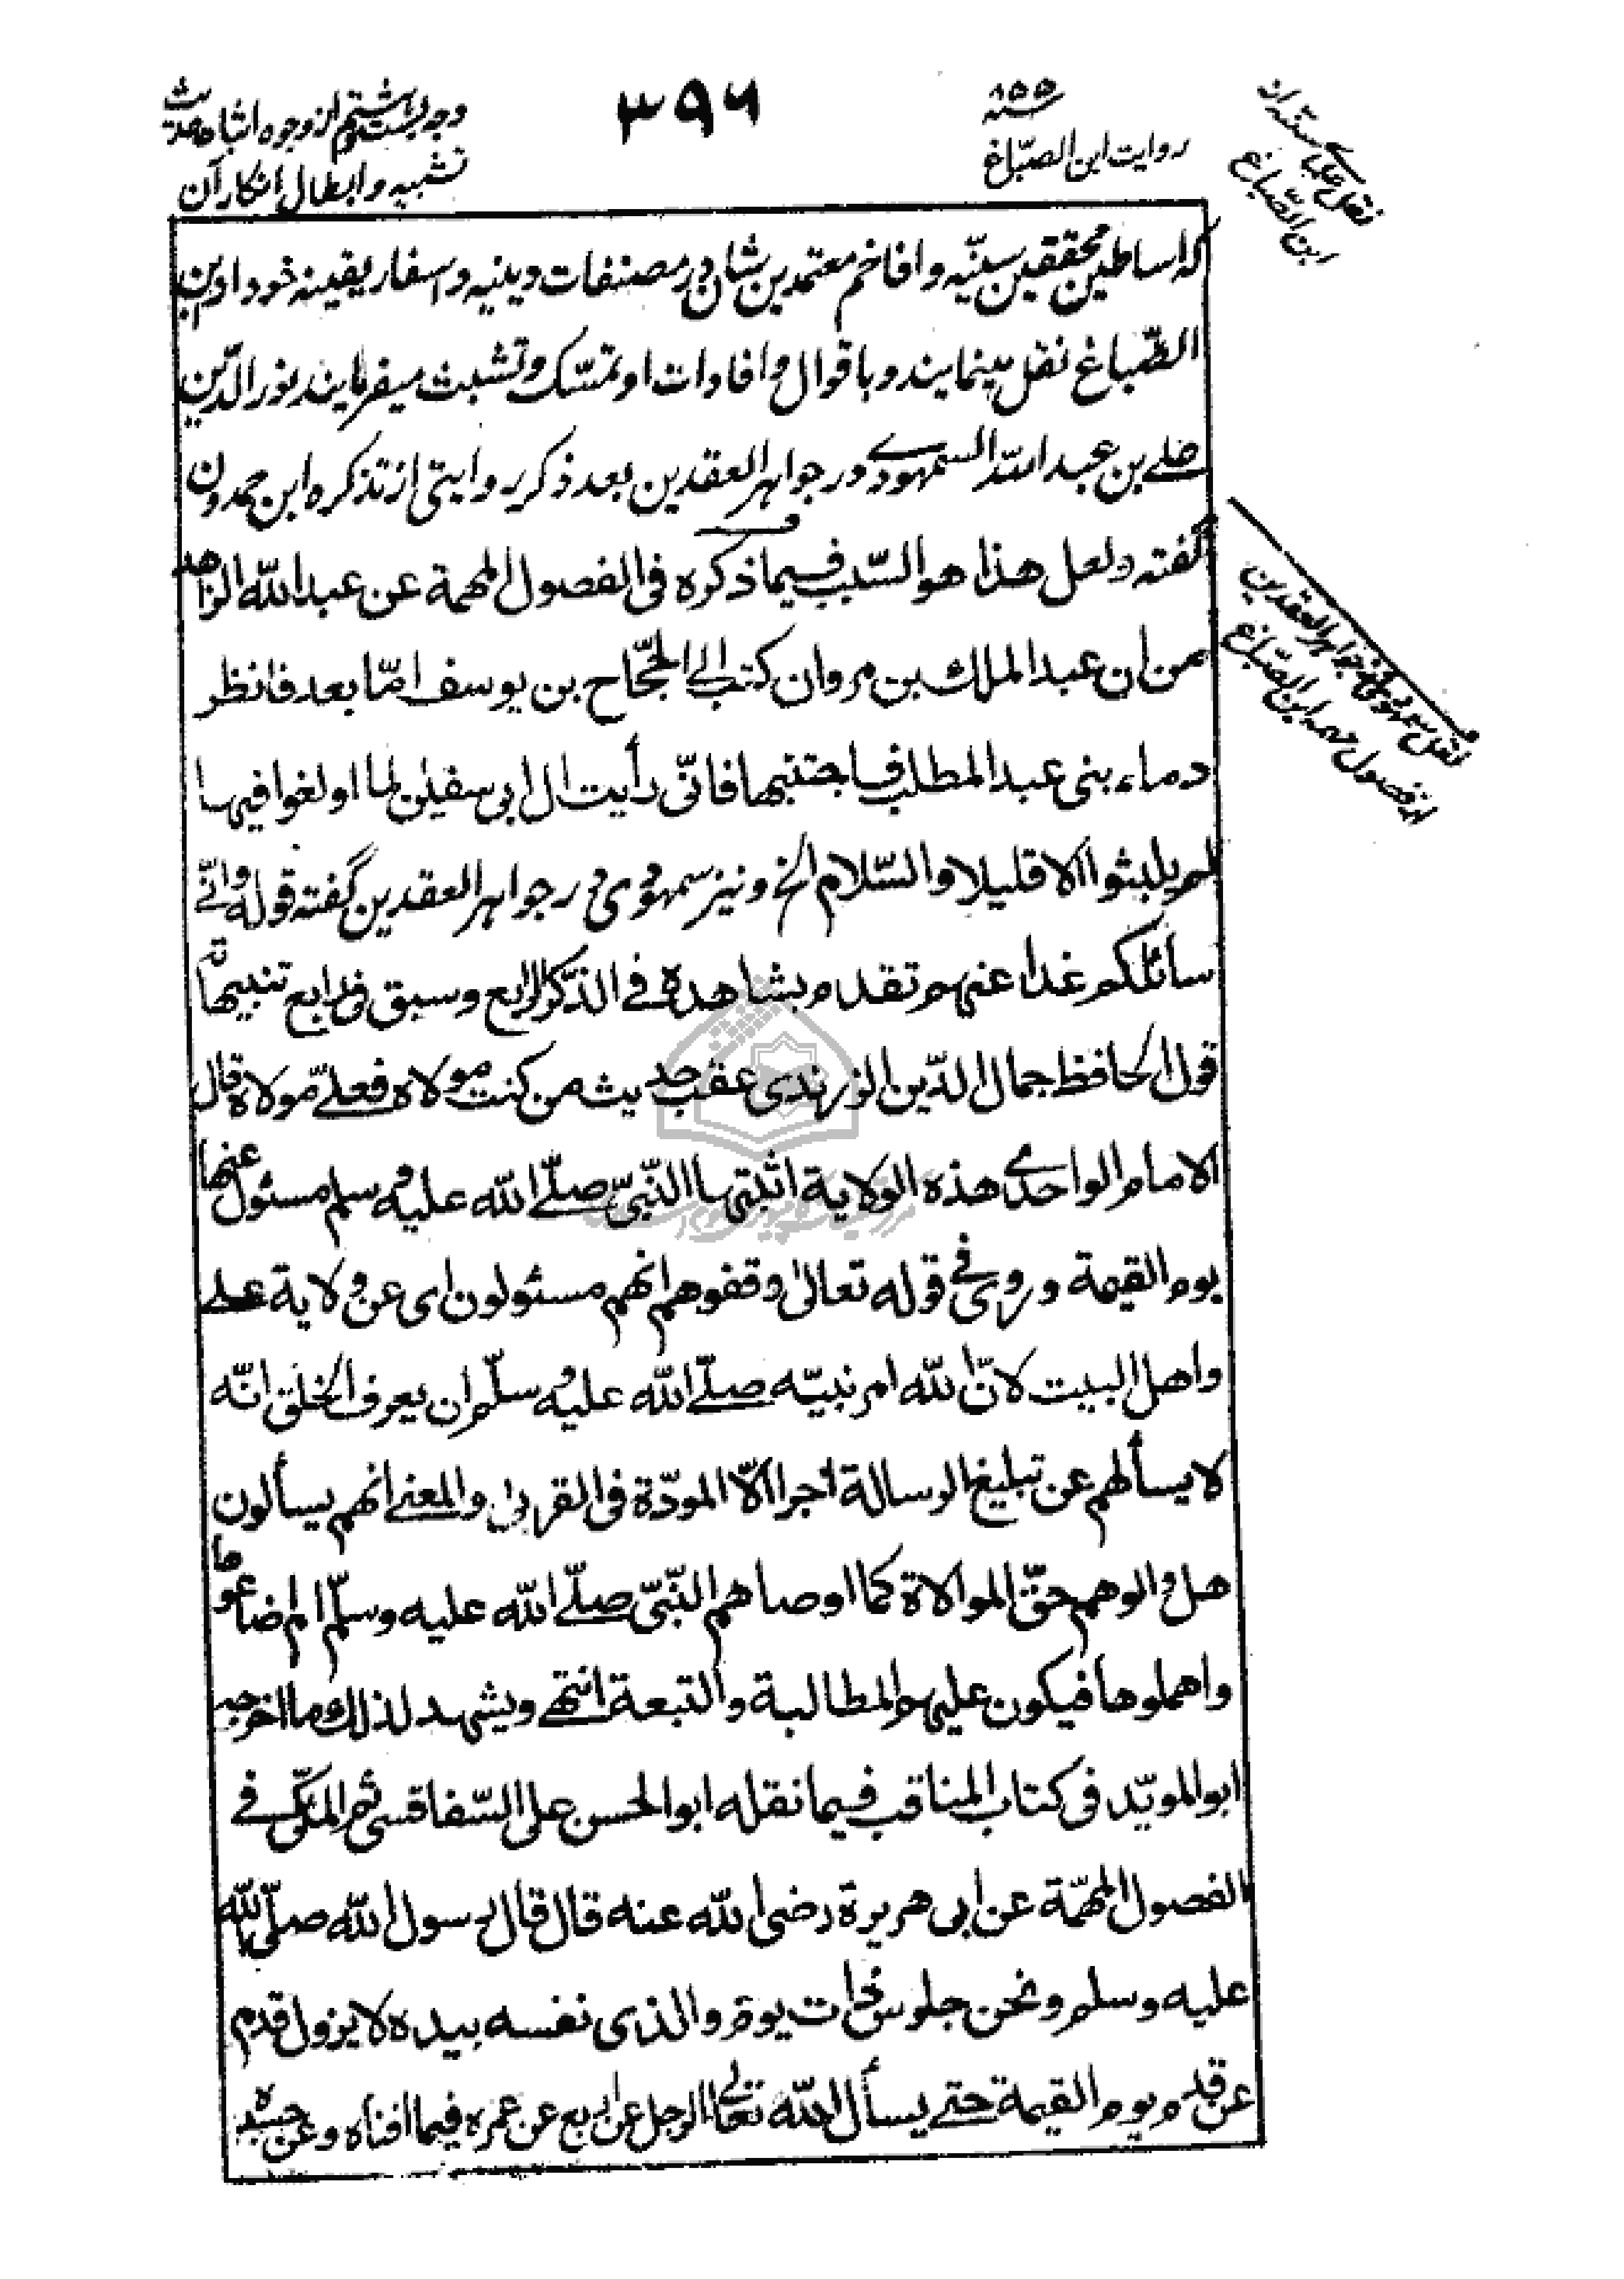 وجه بیست و هشتم از وجوه اثبات حدیث
تشبیه و ابطال انکار آن
۳۹۶
۸۵۵
روایت ابن الصبّاغ
نقل علمای سنّیه از
ابن الصّبّاغ
که اساطین محققین سنّیه و افاخم معتمدین شان در مصنفات دینیه و اسفار یقینیه خود از ابن
الصّبّاغ نقل مینمایند و باقوال و افادات او تمسّک و تشبث میفرمایند نور الدّین
علے بن عبد اللّه السمهودے در جواهر العقدین بعد ذکر روایتی از تذکره ابن حمدون
گفته و لعل هذا هو السّبب فیما ذکره فی الفصول المهمة عن عبد اللّه الزاهد
من ان عبد الملك بن مروان کتب الی الحجّاج بن یوسف امّا بعد فانظر
دماء بنی عبد المطلب فاجتنبها فانّی رأیت ال ابی سفیٰن لما اولغوا فیها
لم یلبثوا الا قلیلا و السّلام الخ و نیز سمهودی در جواهر العقدین گفته قوله و انّی
سائلکم غدا عنهم تقدم بشاهده فی الذّکر الرابع و سبق فی رابع تنبیهاته
قول الحافظ جمال الدّین الزرندی عقب حدیث من کنت مولاه فعلیّ مولاه قال
الامام الواحدے هذه الولایة اثبتها النّبیّ صلّے اللّه علیه و سلم مسئول عنها
یوم القیمة و روی فی قوله تعالیٰ وقفوهم انهم مسئولون ای عن ولایة علے
و اهل البیت لانّ اللّه امر نبیّه صلّے اللّه علیه و سلّم ان یعرف الخلق انّه
لا یسألهم عن تبلیغ الرسالة أجرا الّا المودّة فی القربیٰ و المعنے انهم یسألون
هل والوهم حقّ الموالاة کما اوصاهم النّبیّ صلّے اللّه علیه و سلّم ام اضاعوها
و اهملوها فیکون علیهم المطالبة و التبعة انتهے و یشهد لذلك ما اخرجه
ابو المویّد فی کتاب المناقب فیما نقله ابو الحسن علی السّفاقسی ثم المکّی فی
الفصول المهمّة عن ابی هریرة رضی اللّه عنه قال قال رسول اللّه صلّی اللّه
علیه و سلم و نحن جلوس ذات یوم و الذی نفسه بیده لا یزول قدم
عن قدم یوم القیمة حتے یسأل اللّه تعالی الرجل عن اربع عن عمره فیما افناه و عن جسده
نقل سمهودی در جواهر العقدین
از فصول مهمه ابن الصّبّاغ